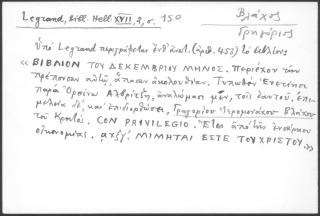 Legrand, Bibl. Hell XVII, 2, σ. 150
Βλάχος
Γρηγόριος
Ὑπό Legrand περιγράφεται ἐνθ' ἀνωτ. (ἀριθ. 455) τό βιβλίον
« ΒΙΒΛΙΟΝ ΤΟΥ ΔΕΚΕΜΒΡΙΟΥ ΜΗΝΟΣ. Περιέχον τήν
πρέπουσαν αὐτῷ ἅπασαν ἀκολουθίαν. Τυπωθέν Ἐνετίησι
παρά Ὀρσίνῳ Ἀλβριτζῃ, ἀναλώμασι μέν, τοῖς ἑαυτοῦ, ἐπι-
μελείᾳ δέ, καί ἐπιδιορθώσει, Γρηγορίου Ἱερομονάχου Βλάχου
τοῦ Κρητός. CON PRIVILEGIO. Ἔτει ἀπό τῆς ἐνσάρκου
οἰκονομίας. αχξγ'. ΜΙΜΗΤΑΙ ΕΣΤΕ ΤΟΥ ΧΡΙΣΤΟΥ.»